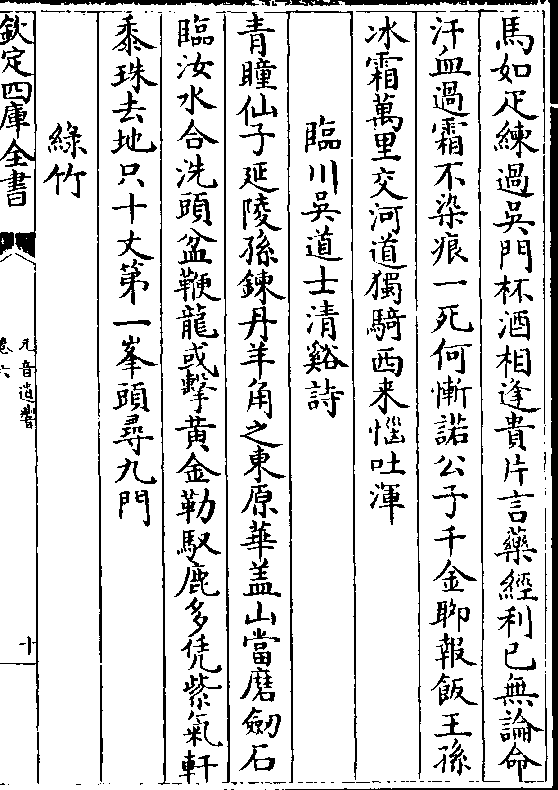 馬如疋練過吳門杯酒相逢貴片言藥經利已無論命
汗血過霜不染痕一死何慚諾公子千金聊報飯王孫
冰霜萬里交河道獨騎西来惱吐渾
臨川吳道士清谿詩
青瞳仙子延陵孫鍊丹羊角之東原華盖山當磨劒石
臨汝水合洗頭盆鞭龍或擊黃金勒馭鹿多凭紫氣軒
黍珠去地只十丈第一峯頭尋九門
綠竹
欽定四庫全書
元音遺響
卷六
十